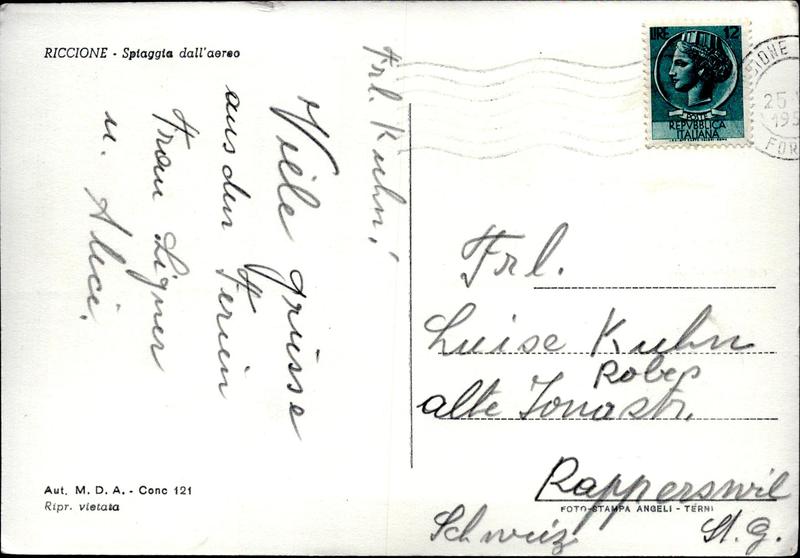 RICCIONE - Spiaggia dall'aereo
Frl. Kuhn!
Viele Grüsse
aus den Ferien
Frau Ligner
u. Aleci.
LIRE 12
POSTE
REPVBBLICA
ITALIANA
RICCIONE
25
195
FOR
Frl.
Luise Kuhn
Robes
alte Jonastr.
Rapperswil
Schweiz St. G.
FOTO-STAMPA ANGELI - TERNI
Aut. M. D. A. - Conc 121
Ripr. vietata